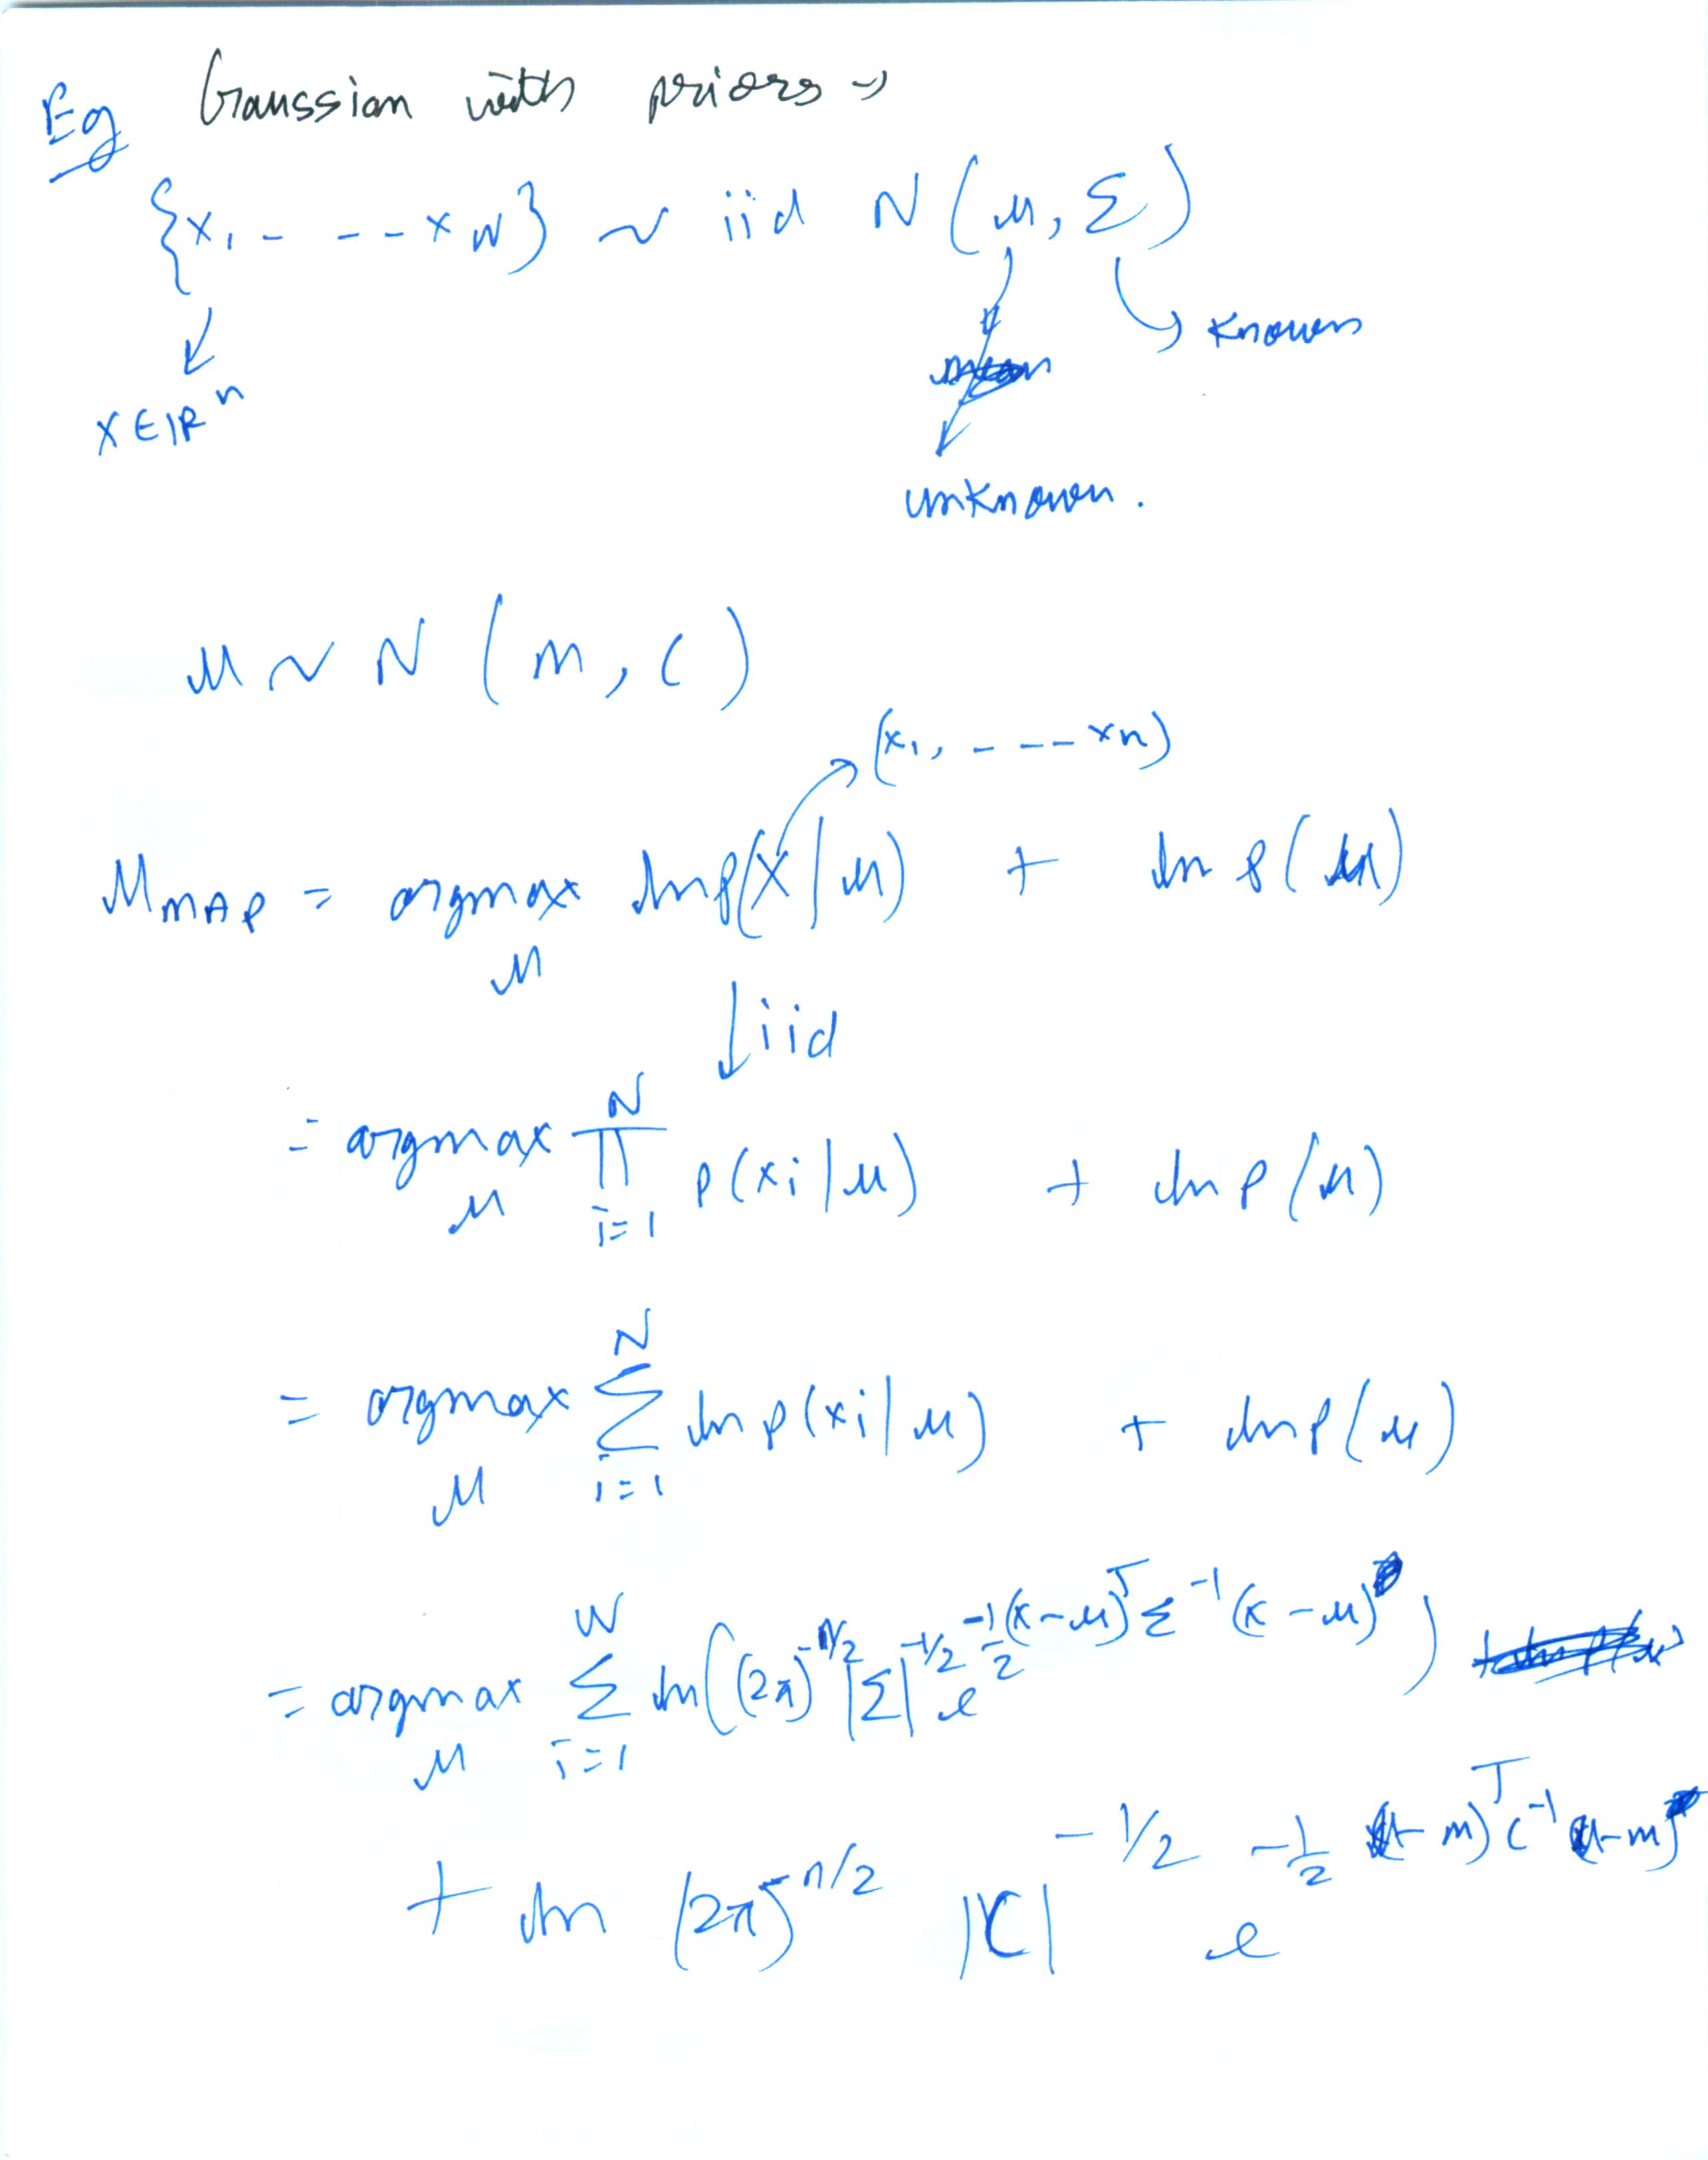 Eg Gaussian with priors →
{x₁ - - - - x N} ~ iid N(μ, Σ)
x ∈ ℝⁿ
known
unknown.
μ ~ N (m, C)
(x₁, - - - - xn)
μ MAP = argmax_μ ln p(X | μ) + ln p(μ)
↓ iid
= argmax_μ ∏_{i=1}^{N} p(xi | μ) + ln p(μ)
= argmax_μ ∑_{i=1}^{N} ln p(xi | μ) + ln p(μ)
= argmax_μ ∑_{i=1}^{N} ln((2π)^{-n/2} |Σ|^{-1/2} e^{-1/2 (x-μ)^T Σ^{-1} (x-μ)})
+ ln (2π)^{-n/2} |C|^{-1/2} e^{-1/2 (μ-m)^T C^{-1} (μ-m)}